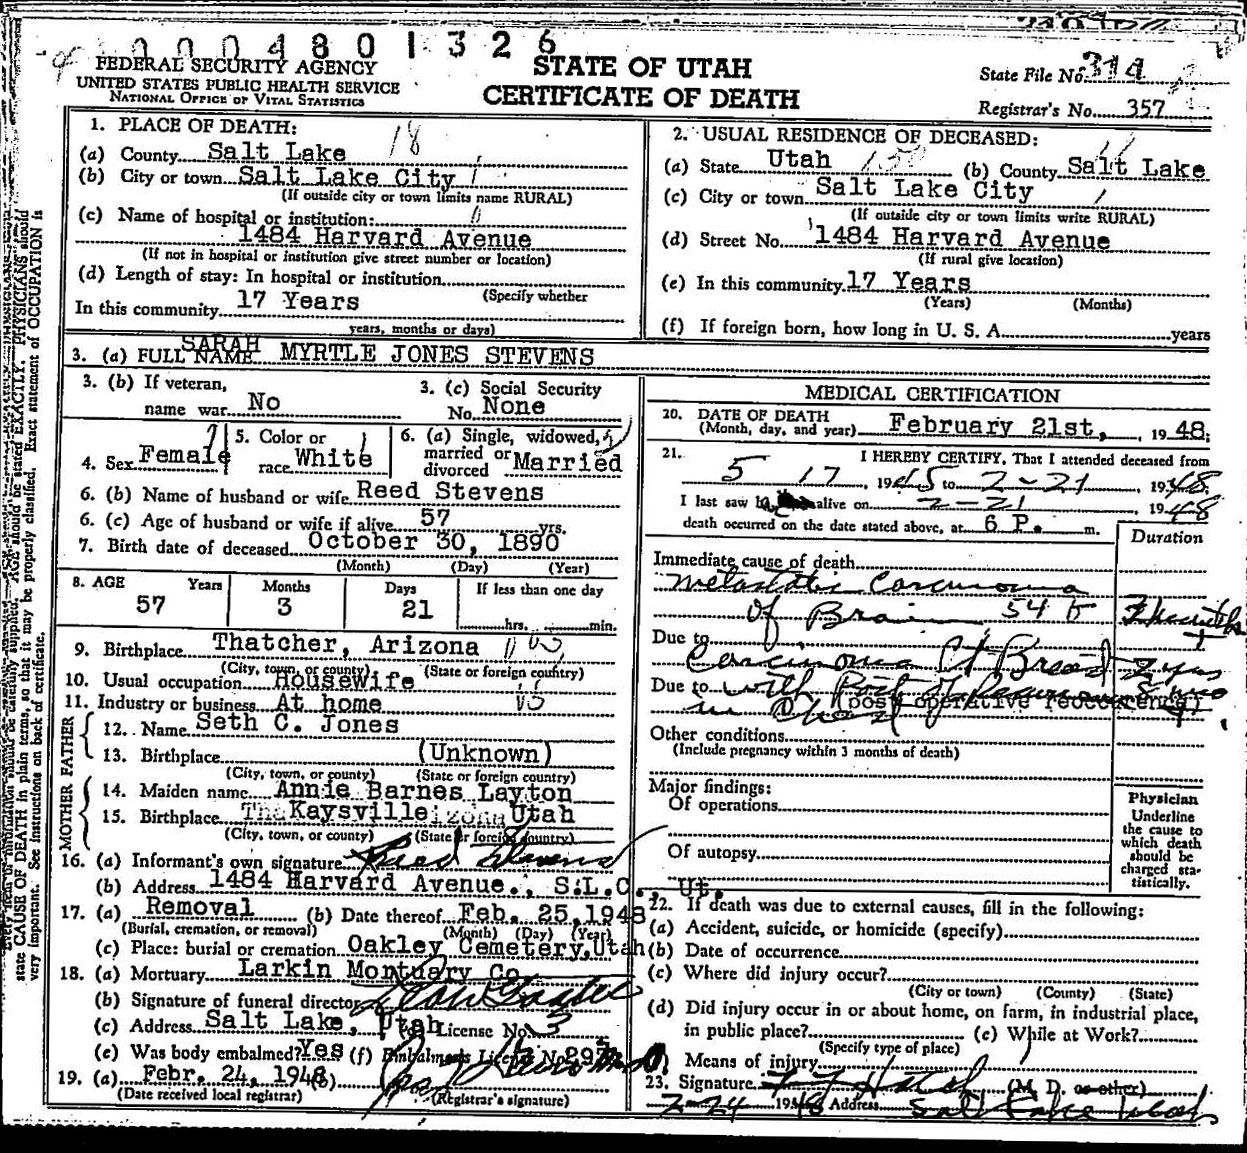 0004801326
FEDERAL SECURITY AGENCY
UNITED STATES PUBLIC HEALTH SERVICE
NATIONAL OFFICE OF VITAL STATISTICS
STATE OF UTAH
CERTIFICATE OF DEATH
State File No. 314
Registrar's No. 357
1. PLACE OF DEATH: 18
(a) County Salt Lake
(b) City or town Salt Lake City
(If outside city or town limits name RURAL)
(c) Name of hospital or institution:
1484 Harvard Avenue
(If not in hospital or institution give street number or location)
(d) Length of stay: In hospital or institution
(Specify whether
In this community 17 Years
years, months or days)
2. USUAL RESIDENCE OF DECEASED:
(a) State Utah (b) County Salt Lake
(c) City or town Salt Lake City
(If outside city or town limits write RURAL)
(d) Street No. 1484 Harvard Avenue
(If rural give location)
(e) In this community 17 Years
(Years) (Months)
(f) If foreign born, how long in U. S. A. years
3. (a) FULL NAME SARAH MYRTLE JONES STEVENS
3. (b) If veteran,
name war No
3. (c) Social Security
No. None
4. Sex Female
5. Color or
race White
6. (a) Single, widowed,
married or
divorced Married
6. (b) Name of husband or wife Reed Stevens
6. (c) Age of husband or wife if alive 57 yrs.
7. Birth date of deceased October 30, 1890
(Month) (Day) (Year)
8. AGE Years Months Days If less than one day
57 3 21 hrs. min.
9. Birthplace Thatcher, Arizona
(City, town, or county) (State or foreign country)
10. Usual occupation HouseWife
11. Industry or business At home
FATHER
12. Name Seth C. Jones
13. Birthplace (Unknown)
(City, town, or county) (State or foreign country)
MOTHER
14. Maiden name Annie Barnes Layton
15. Birthplace Kaysville Utah
(City, town, or county) (State or foreign country)
16. (a) Informant's own signature Reed Stevens
(b) Address 1484 Harvard Avenue., S.L.C., Ut.
17. (a) Removal (b) Date thereof Feb. 25, 1948
(Burial, cremation, or removal) (Month) (Day) (Year)
(c) Place: burial or cremation Oakley Cemetery, Utah
18. (a) Mortuary Larkin Mortuary Co.
(b) Signature of funeral director
(c) Address Salt Lake, Utah License No. 3
(e) Was body embalmed? Yes (f) Embalmer's License No.
19. (a) Febr. 24, 1948 (b)
(Date received local registrar) (Registrar's signature)
MEDICAL CERTIFICATION
20. DATE OF DEATH
(Month, day, and year) February 21st, , 1948;
21. I HEREBY CERTIFY, That I attended deceased from
5 17, 1945 to 2-21, 1948
I last saw h alive on 2-21, 1948
death occurred on the date stated above, at 6 P. m.
Duration
Immediate cause of death
Metastatic Carcinoma
of Brain 54 b
Due to
Carcinoma Rt Breast 2 yrs
Due to with Post
in Chest (post operative reoccurence)
Other conditions
(Include pregnancy within 3 months of death)
Major findings:
Of operations
Of autopsy
Physician
Underline
the cause to
which death
should be
charged sta-
tistically.
22. If death was due to external causes, fill in the following:
(a) Accident, suicide, or homicide (specify)
(b) Date of occurrence
(c) Where did injury occur?
(City or town) (County) (State)
(d) Did injury occur in or about home, on farm, in industrial place,
in public place? (e) While at Work?
(Specify type of place)
Means of injury
23. Signature (M. D. or other)
2-24 1948 Address Salt Lake Utah
AGE should be stated EXACTLY. PHYSICIANS should
state CAUSE OF DEATH in plain terms, so that it may be properly classified. Exact statement of OCCUPATION is
very important. See instructions on back of certificate.